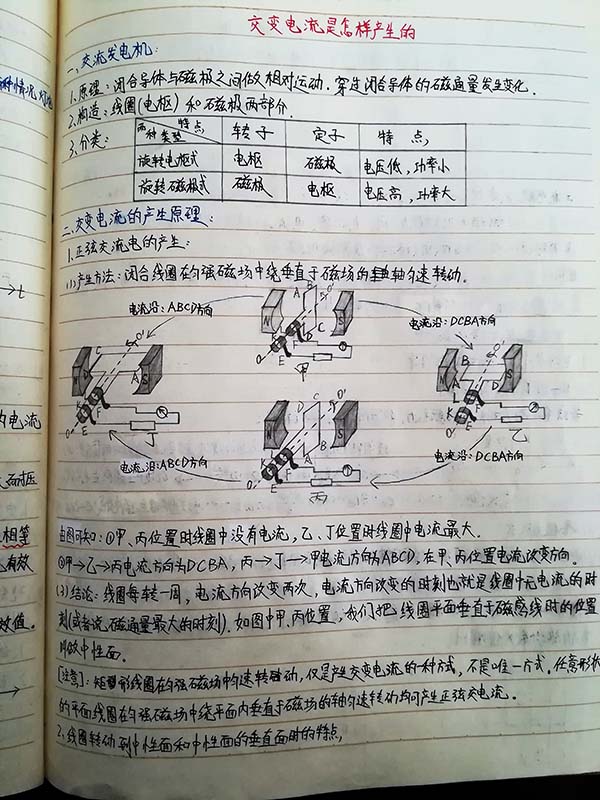 交变电流是怎样产生的
一、交流发电机:
1、原理:闭合导体与磁极之间做相对运动,穿过闭合导体的磁通量发生变化.
2、构造:线圈(电枢)和磁极两部分.
3、分类:
两种类型 特点 转子 定子 特点
旋转电枢式 电枢 磁极 电压低,功率小
旋转磁极式 磁极 电枢 电压高,功率大
二、交变电流的产生原理:
1、正弦交流电的产生:
(1)产生方法:闭合线圈在匀强磁场中绕垂直于磁场的轴匀速转动.
电流沿:ABCD方向
电流沿:DCBA方向
甲
丁
乙
电流沿:ABCD方向
电流沿:DCBA方向
丙
由图可知:①甲、丙位置时线圈中没有电流,乙、丁位置时线圈中电流最大.
②甲→乙→丙电流方向为DCBA,丙→丁→甲电流方向为ABCD,在甲、丙位置电流改变方向.
(3)结论:线圈每转一周,电流方向改变两次,电流方向改变的时刻也就是线圈中无电流的时
刻(或者说磁通量最大的时刻).如图中甲、丙位置,我们把线圈平面垂直于磁感线时的位置
叫做中性面.
[注意]:矩形线圈在匀强磁场中匀速转动,仅是产生交变电流的一种方式,不是唯一方式.任意形状
的平面线圈在匀强磁场中绕平面内垂直于磁场的轴匀速转动均可产生正弦交电流.
2、线圈转动到中性面和中性面的垂直面时的特点,